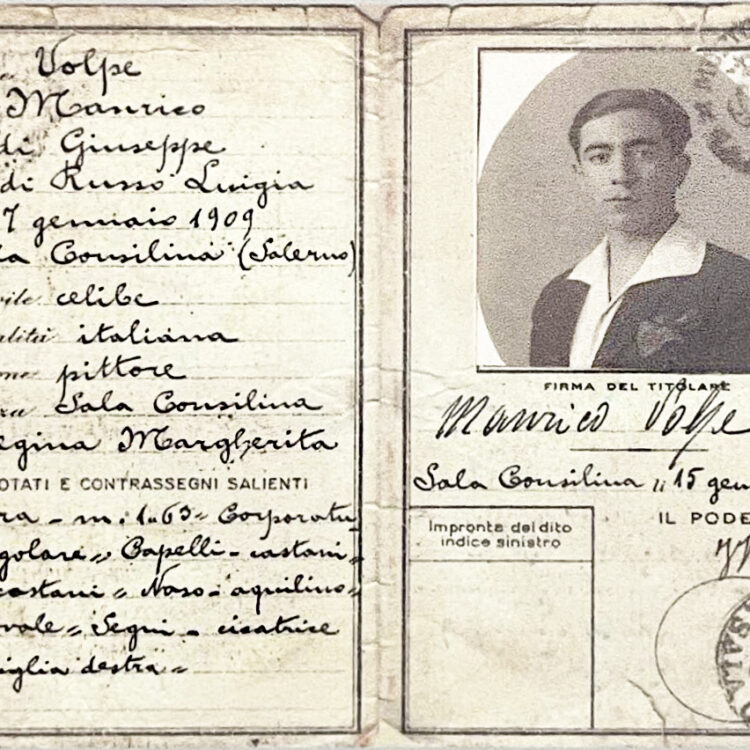 Volpe
Manrico
di Giuseppe
di Russo Luigia
7 gennaio 1909
la Consilina (Salerno)
vile celibe
alità italiana
one pittore
za Sala Consilina
egina Margherita
OTATI E CONTRASSEGNI SALIENTI
ra - m. 1.63 = Corporatu
golare = Capelli - castani =
castani = Naso - aquilino =
vale = Segni - cicatrice
iglia destra =
FIRMA DEL TITOLARE
Manrico Volpe
Sala Consilina, 15 gen
IL PODE
Impronta del dito
indice sinistro